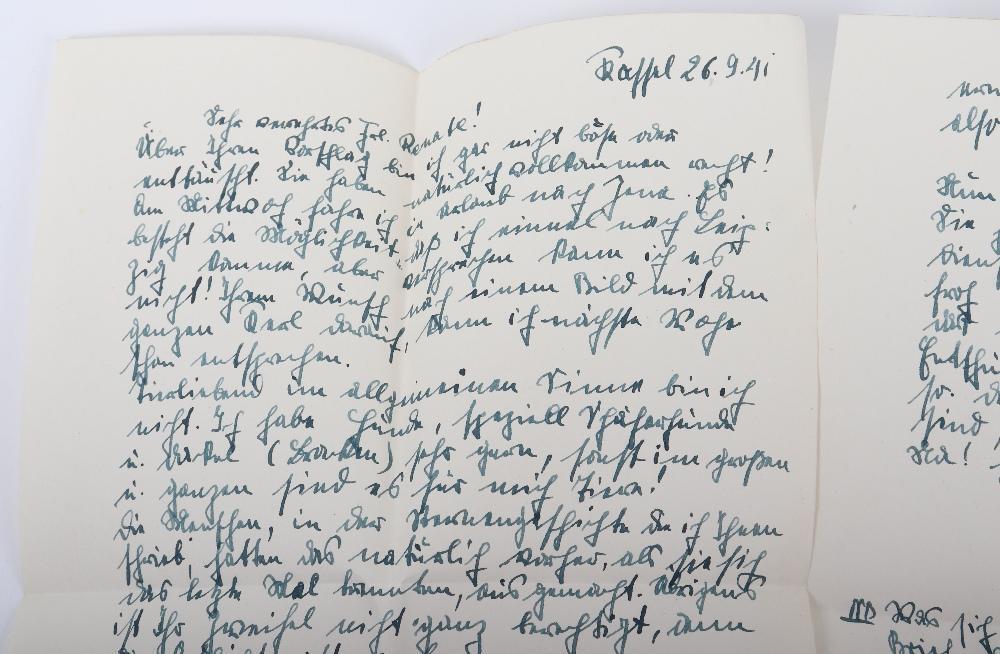 Kassel 26.9.41
Sehr verehrtes Frl. Renate!
Über Ihren Vorschlag bin ich gar nicht böse oder
enttäuscht. Sie haben natürlich vollkommen recht!
Am Mittwoch fahre ich in Urlaub nach Jena. Es
besteht die Möglichkeit, daß ich einmal nach Leip:
zig komme, aber versprechen kann ich es
nicht! Ihrem Wunsch nach einem Bild mit dem
ganzen Kerl darauf, kann ich nächste Woche
schon entsprechen.
Tierliebend im allgemeinen Sinne bin ich
nicht. Ich habe Hunde, speziell Schäferhunde
u. Dackel (Bracken) sehr gern, sonst im großen
u. ganzen sind es für mich Tiere!
Die Menschen, in der Sternengeschichte die ich Ihnen
schrieb, hatten das natürlich vorher, als sie sich
das letzte Mal trennten, ausgemacht. Übrigens
ist Ihr Zweifel nicht ganz berechtigt, denn
also
Nun
Die
froh
das
so. da
sind
Na!
III) Was sich
Brief